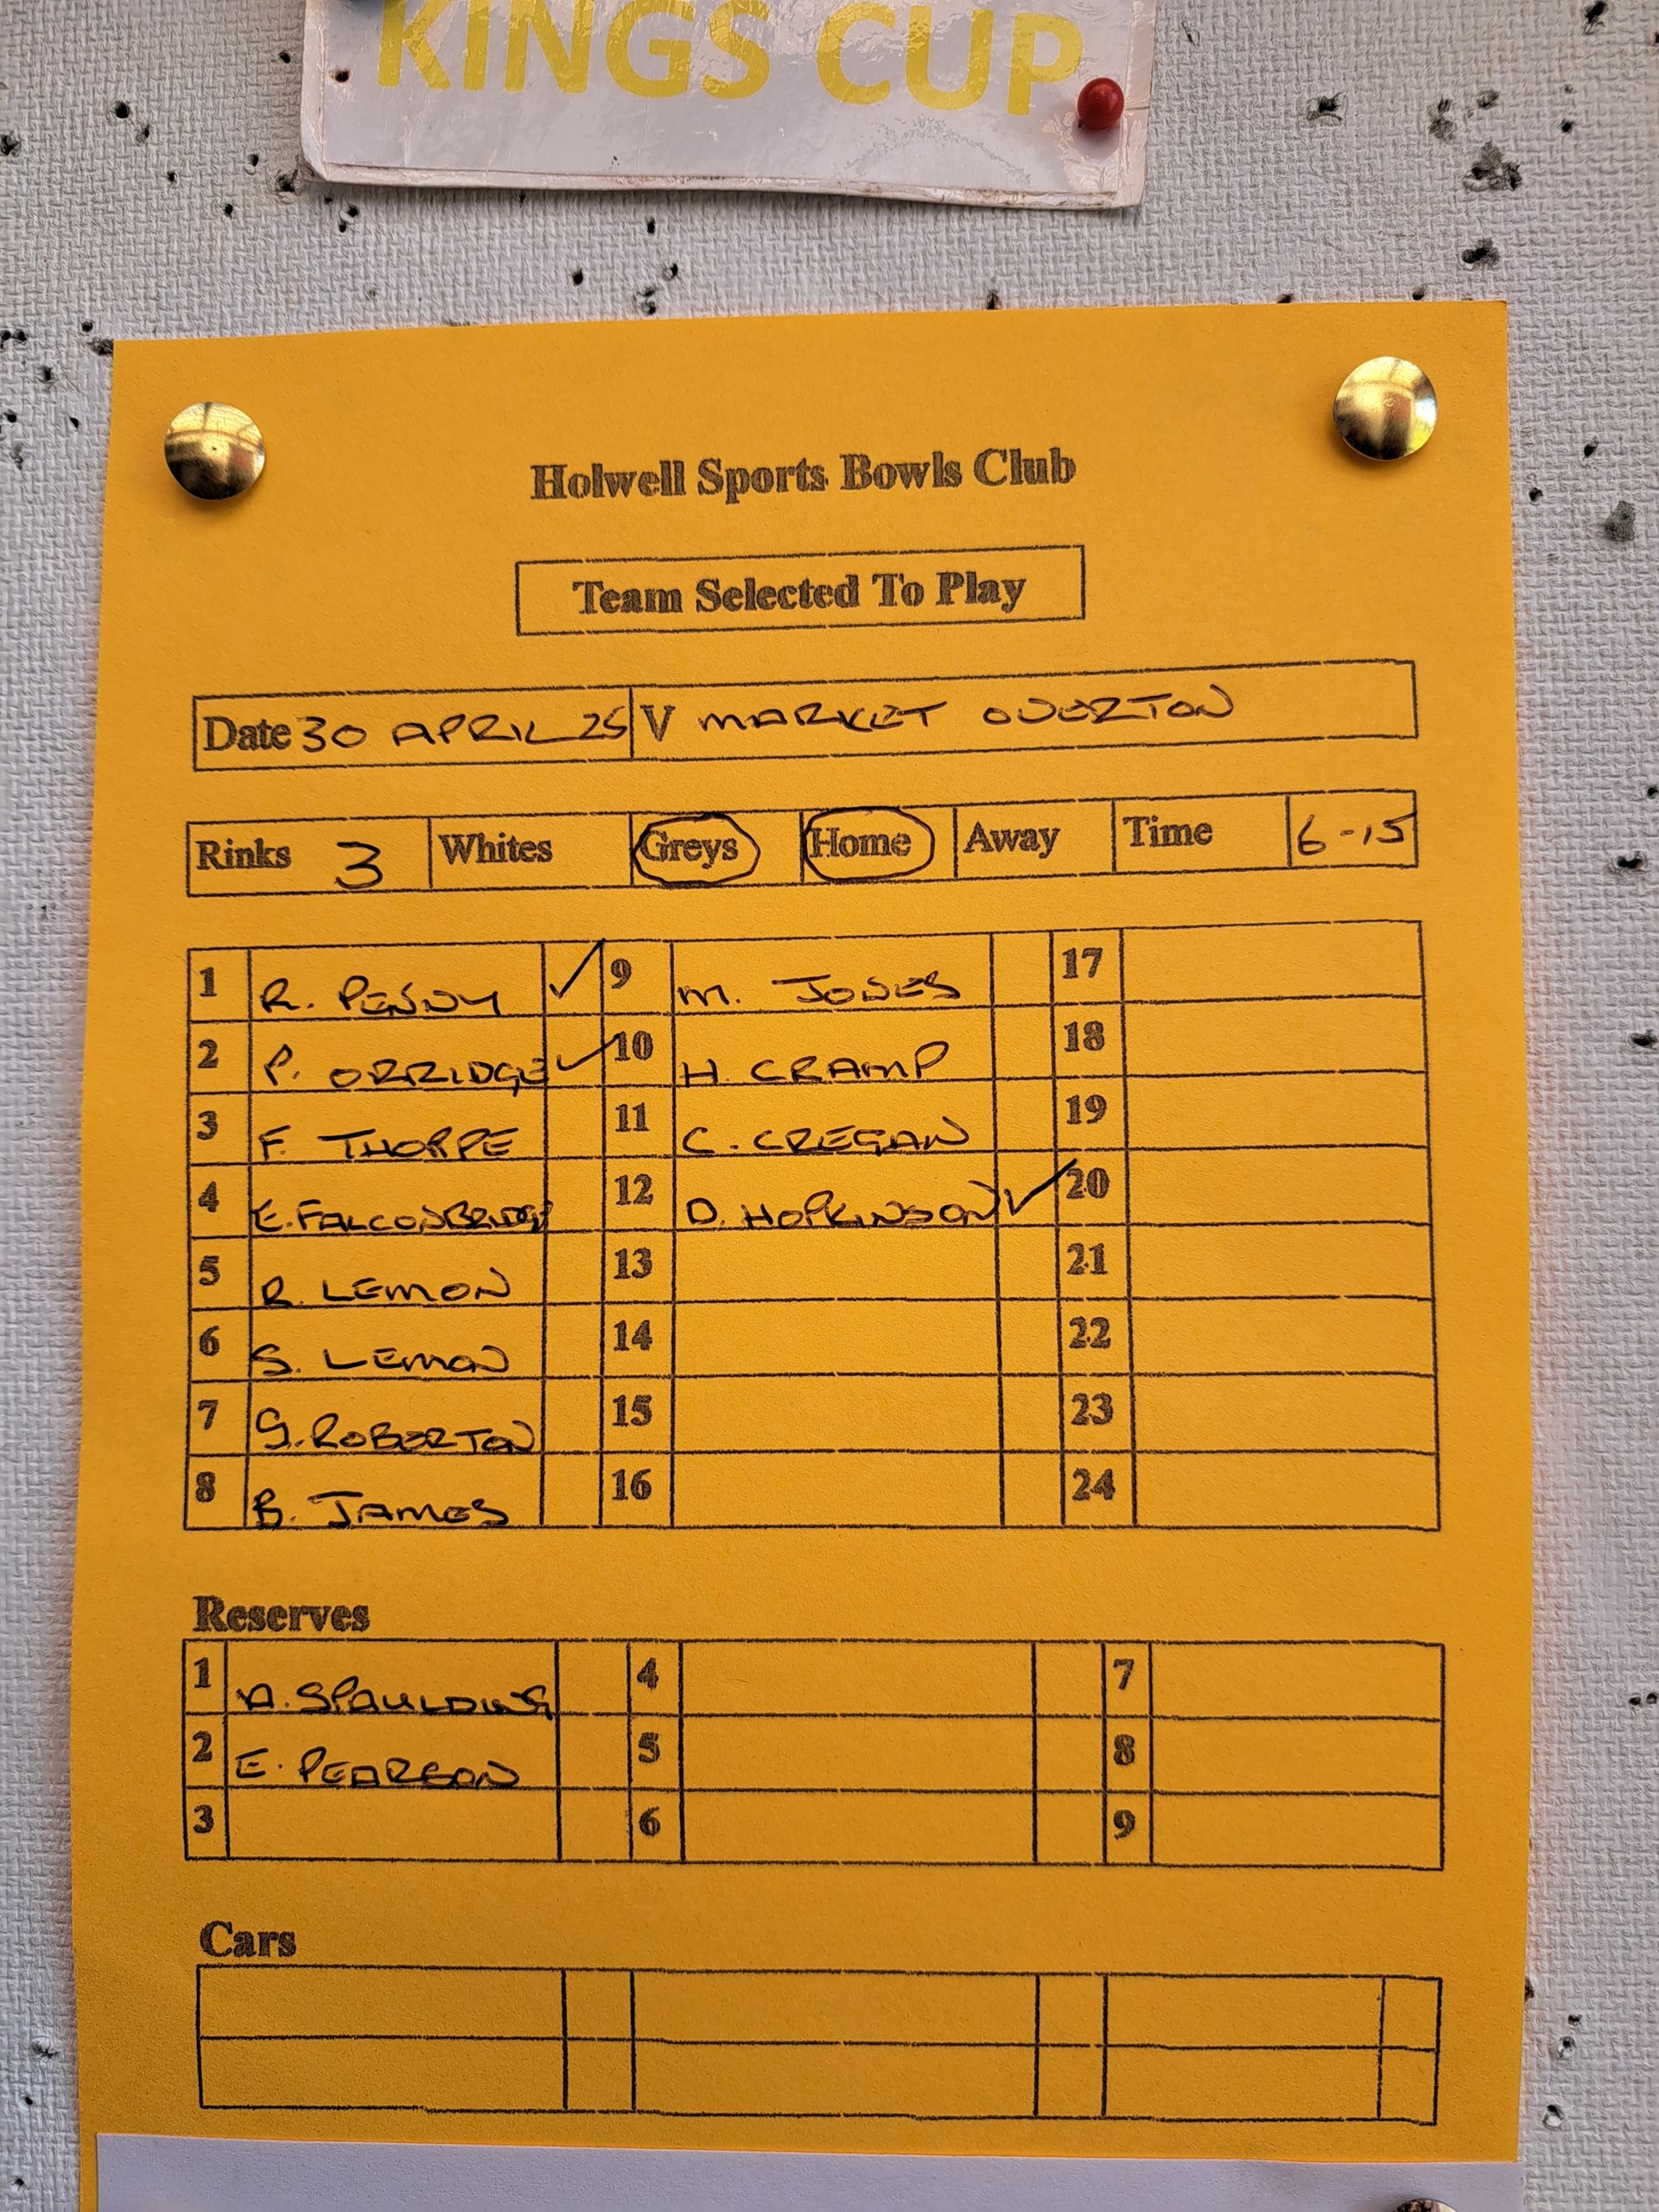 KINGS CUP
Holwell Sports Bowls Club
Team Selected To Play
Date 30 APRIL 25 V MARKET OVERTON
Rinks 3 Whites Greys Home Away Time 6-15
1 R. PENNY ✓ 9 M. JONES 17
2 P. ORRIDGE ✓ 10 H. CRAMP 18
3 F. THORPE 11 C. CREGAN 19
4 E. FALCONBRIDGE 12 D. HOPKINSON ✓ 20
5 R. LEMON 13 21
6 S. LEMON 14 22
7 G. ROBERTON 15 23
8 B. JAMES 16 24
Reserves
1 A. SPAULDING 4 7
2 E. PEARSON 5 8
3 6 9
Cars